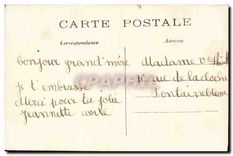 CARTE POSTALE
Correspondance
Adresse
bonjour grand'mère
je t'embrasse
Merci pour ta jolie
jeannette carte
Madame Ve
rue de la cloche
Fontainebleau